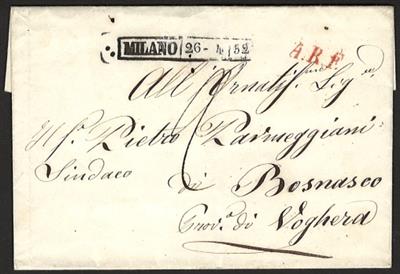 MILANO 26 - 4 52
A.R.F.
All' Ornatiss. Sig.
Il S.r Pietro Parmeggiani
Sindaco di Bosnasco
Prov.a di Voghera